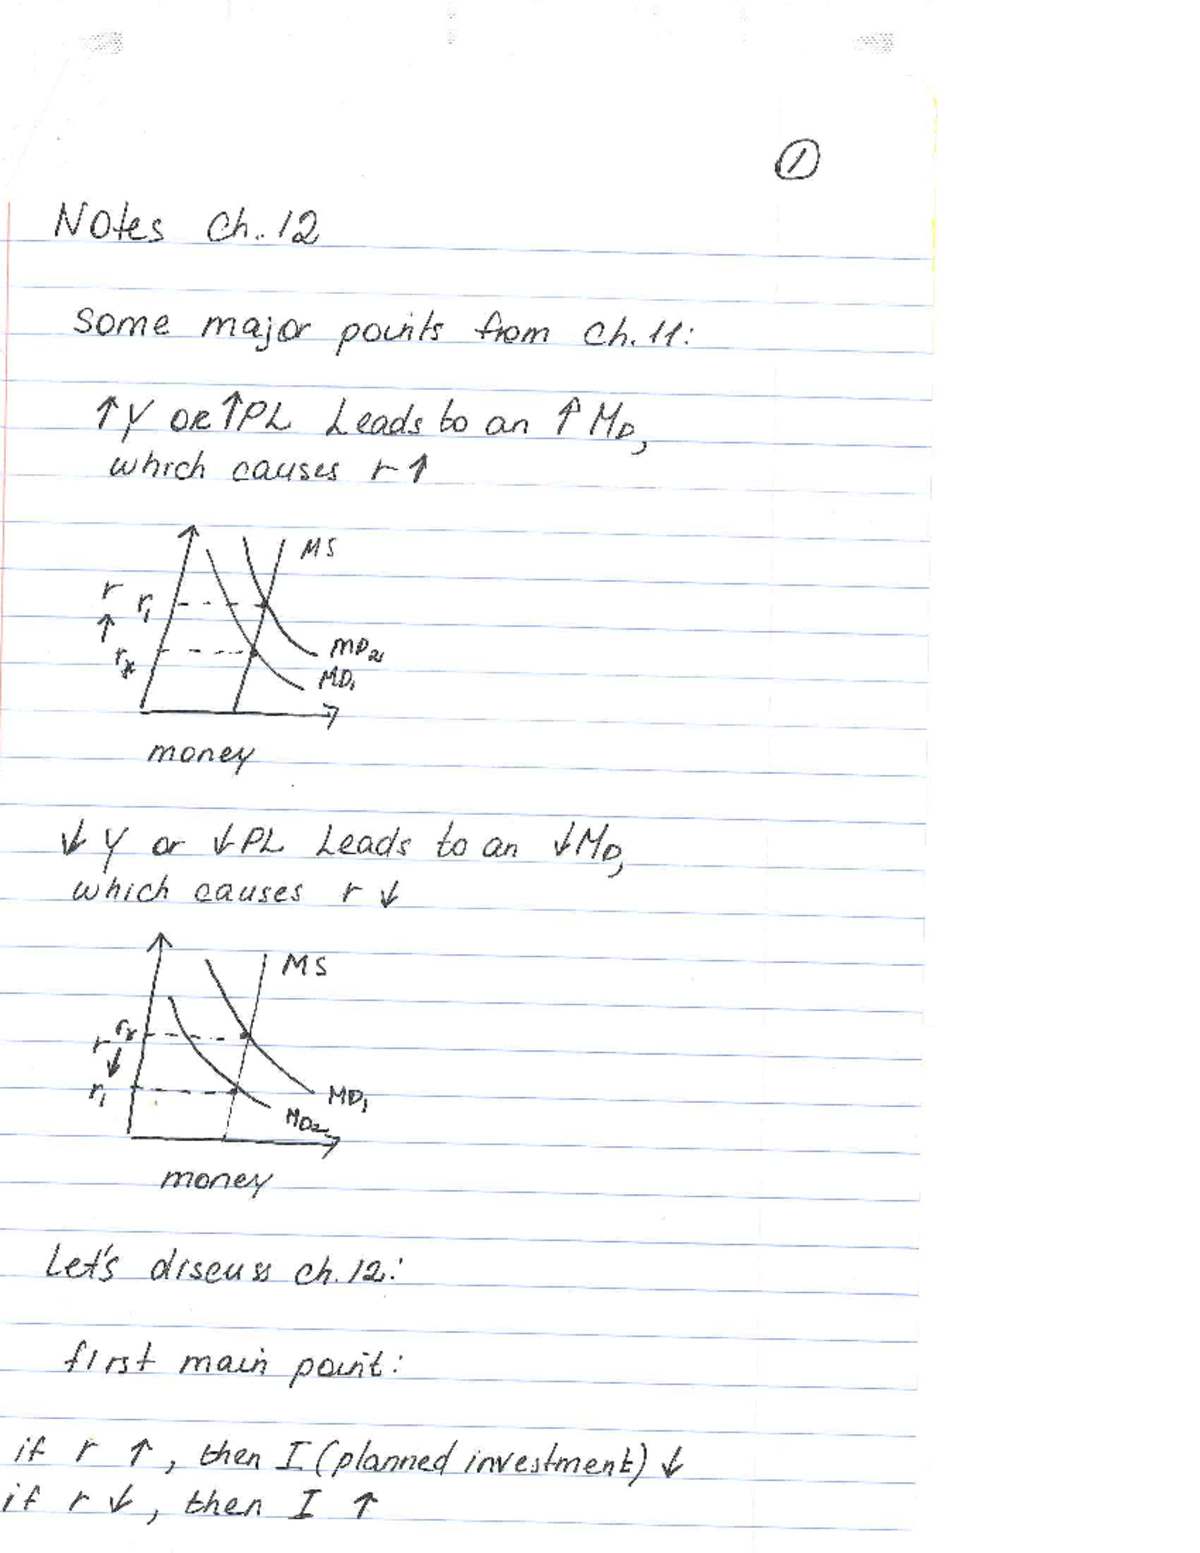 1
Notes Ch. 12
Some major points from Ch. 11:
↑Y OR ↑PL Leads to an ↑ MD,
which causes r ↑
MS
r r1
↑
r*
MD2
MD1
money
↓ Y or ↓PL Leads to an ↓MD,
which causes r ↓
MS
r r*
↓
r1
MD1
MD2
money
Let's discuss ch. 12:
first main point:
if r ↑, then I (planned investment) ↓
if r ↓, then I ↑